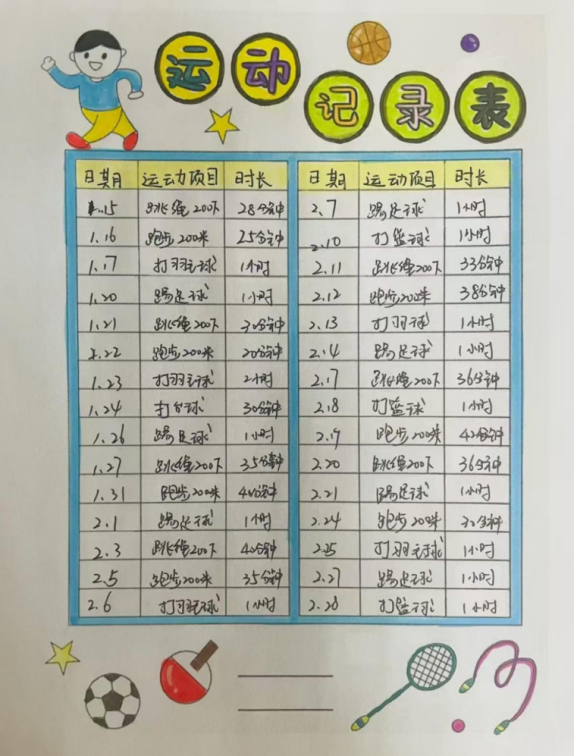 运动
记录表
日期 运动项目 时长
1.15 跳绳200下 28分钟
1.16 跑步200米 25分钟
1.17 打羽毛球 1小时
1.20 踢足球 1小时
1.21 跳绳200下 30分钟
1.22 跑步200米 20分钟
1.23 打羽毛球 2小时
1.24 打台球 30分钟
1.26 踢足球 1小时
1.27 跳绳200下 35分钟
1.31 跑步200米 40分钟
2.1 踢足球 1小时
2.3 跳绳200下 40分钟
2.5 跑步200米 35分钟
2.6 打羽毛球 1小时
日期 运动项目 时长
2.7 踢足球 1小时
2.10 打篮球 1小时
2.11 跳绳200下 33分钟
2.12 跑步200米 38分钟
2.13 打羽球 1小时
2.14 踢足球 1小时
2.17 跳绳200下 36分钟
2.18 打篮球 1小时
2.19 跑步200米 42分钟
2.20 跳绳200下 36分钟
2.21 踢足球 1小时
2.24 跑步200米 32分钟
2.25 打羽毛球 1小时
2.27 踢足球 1小时
2.28 打篮球 1小时